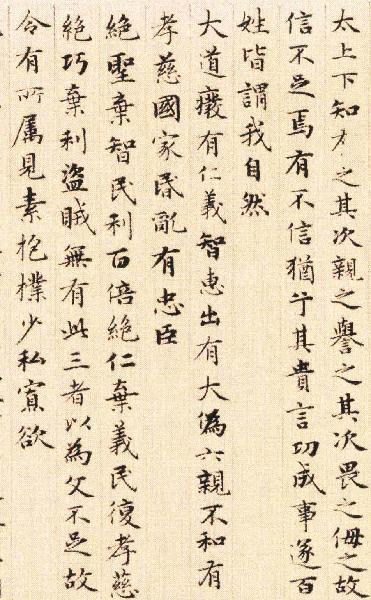 太上下知有之其次親之譽之其次畏之侮之故
信不足焉有不信猶乎其貴言功成事遂百
姓皆謂我自然
大道癈有仁義智惠出有大偽六親不和有
孝慈國家昬亂有忠臣
絕聖棄智民利百倍絕仁棄義民復孝慈
絕巧棄利盜賊無有此三者以為文不足故
令有所属見素抱樸少私寡欲